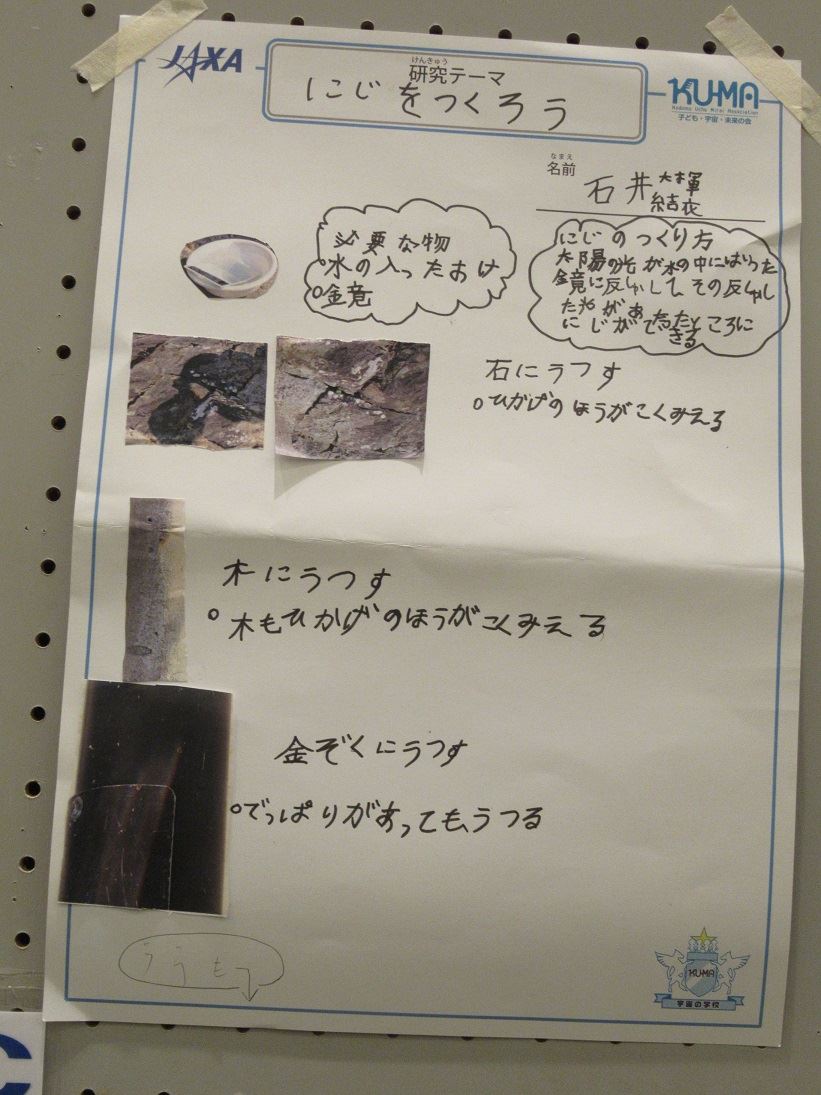 JAXA
けんきゅう
研究テーマ
にじをつくろう
KU-MA
Kodomo Uchu Mirai Association
子ども・宇宙・未来の会
なまえ
名前
石井
大輝
結衣
必要な物
水の入ったおけ
鏡
にじのつくり方
太陽の光が水の中にはいった
鏡に反しゃして、その反しゃし
た光があたったところに
にじができる
石にうつす
ひかげのほうがこくみえる
木にうつす
木もひかげのほうがこくみえる
金ぞくにうつす
でっぱりがあってもうつる
うらも
KU-MA
宇宙の学校